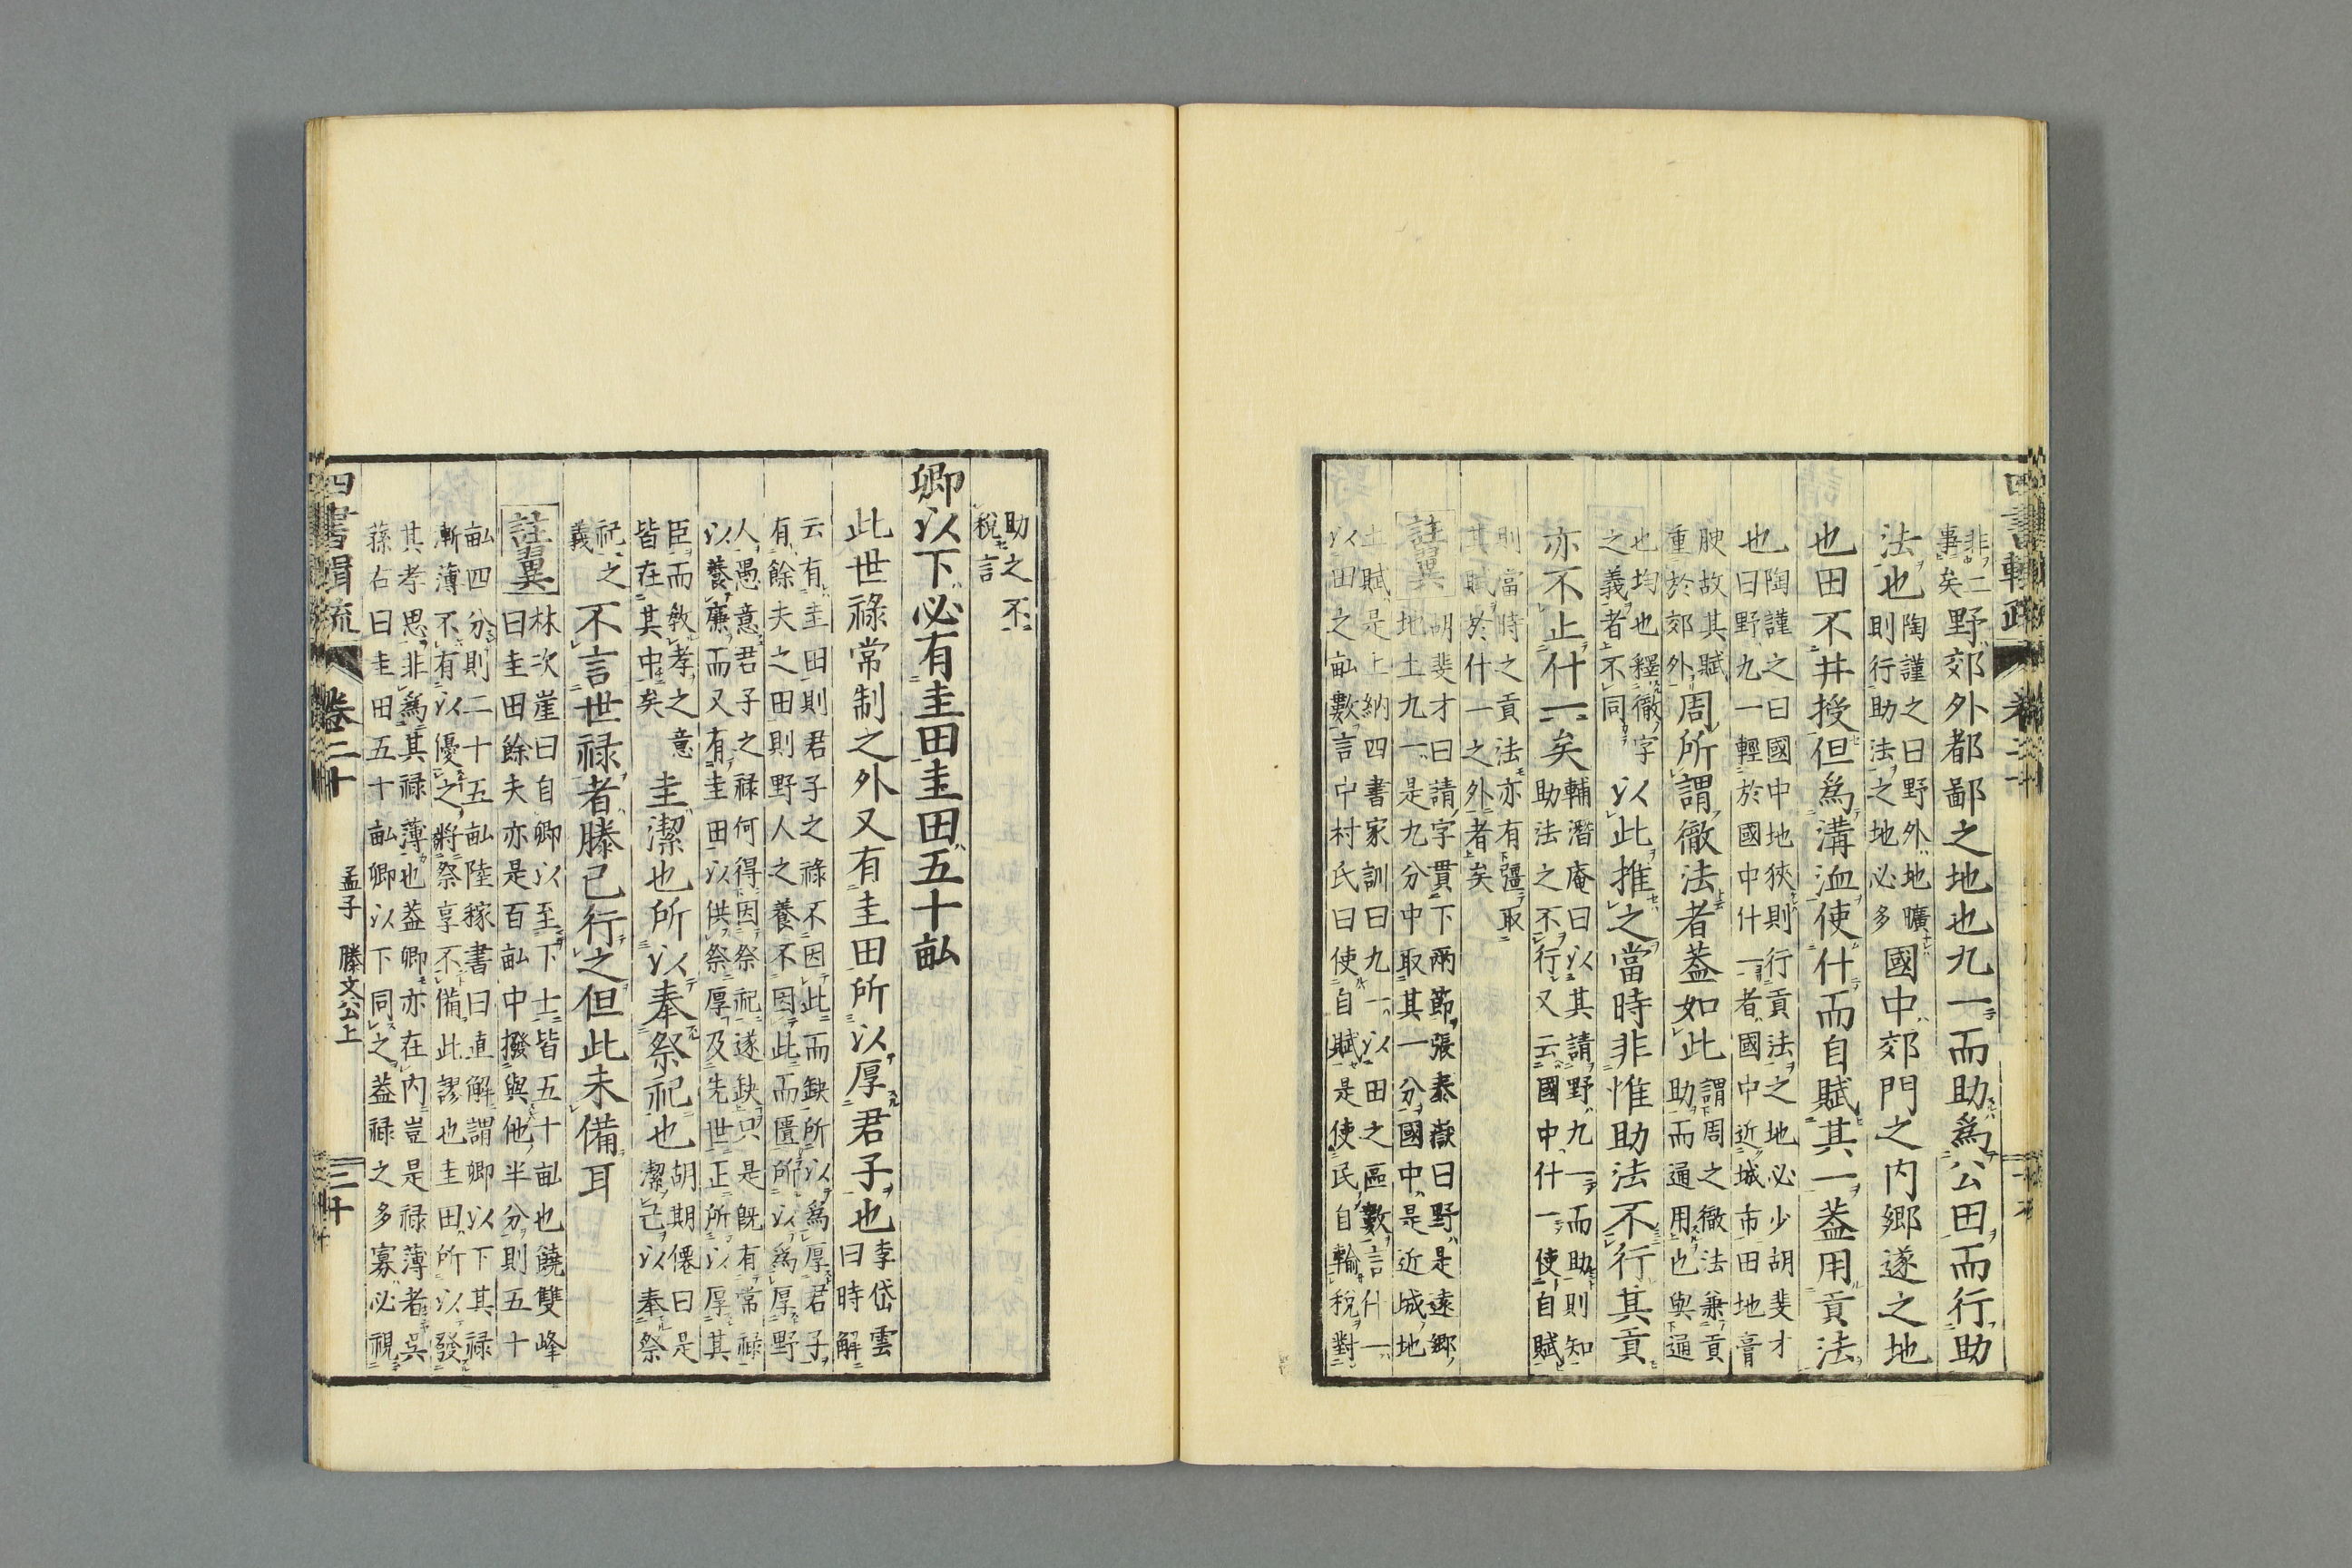 非二
事矣
野郊外都鄙之地也九一而助爲公田而行助
法也
陶謹之曰野外地曠
則行助法之地必多
國中郊門之内郷遂之地
也田不井授但爲溝洫使什而自賦其一葢用貢法
也
陶謹之曰國中地狹則行貢法之地必少胡斐才
曰野九一輕於國中什一者國中近城市田地膏
腴故其賦
重於郊外
周所謂徹法者葢如此
謂周之徹法兼貢
助而通用也與通
也均也釋徹字
之義者不同
以此推之當時非惟助法不行其貢
亦不止什一矣
輔潛庵曰以其請野九一而助則知
助法之不行又云國中什一使自賦
則當時之貢法亦有彊取
其賦於什一之外者矣
註翼
胡斐才曰請字貫下兩節張泰嶽曰野是遠郷
地土九一是九分中取其一分國中是近城地
土賦是上納四書家訓曰九一以田之區數言什一
以田之畝數言中村氏曰使自賦是使民自輸税對
四書輯疏
助之不
税言
卿以下必有圭田圭田五十畝
此世祿常制之外又有圭田所以厚君子也
李岱雲
曰時解
云有圭田則君子之祿不因此而缺所以爲厚君子
有餘夫之田則野人之養不因此而匱所以爲厚野
人愚意君子之祿何得因祭祀遂缺只是旣有常祿
以養廉而又有圭田以供祭厚及先世正所以厚其
臣而敎孝之意
皆在其中矣
圭潔也所以奉祭祀也
胡期僊曰是
潔己以奉祭
祀之
義
不言世祿者滕已行之但此未備耳
註翼
林次崖曰自卿以至下士皆五十畝也饒雙峰
曰圭田餘夫亦是百畝中撥與他半分則五十
畝四分則二十五畝陸稼書曰直解謂卿以下其祿
漸薄不有以優之將祭享不備此謬也圭田所以發
其孝思非爲其祿薄也葢卿亦在内豈是祿薄者吳
蓀右曰圭田五十畝卿以下同之葢祿之多寡必視
四書輯疏
卷二十
孟子 滕文公上
三十